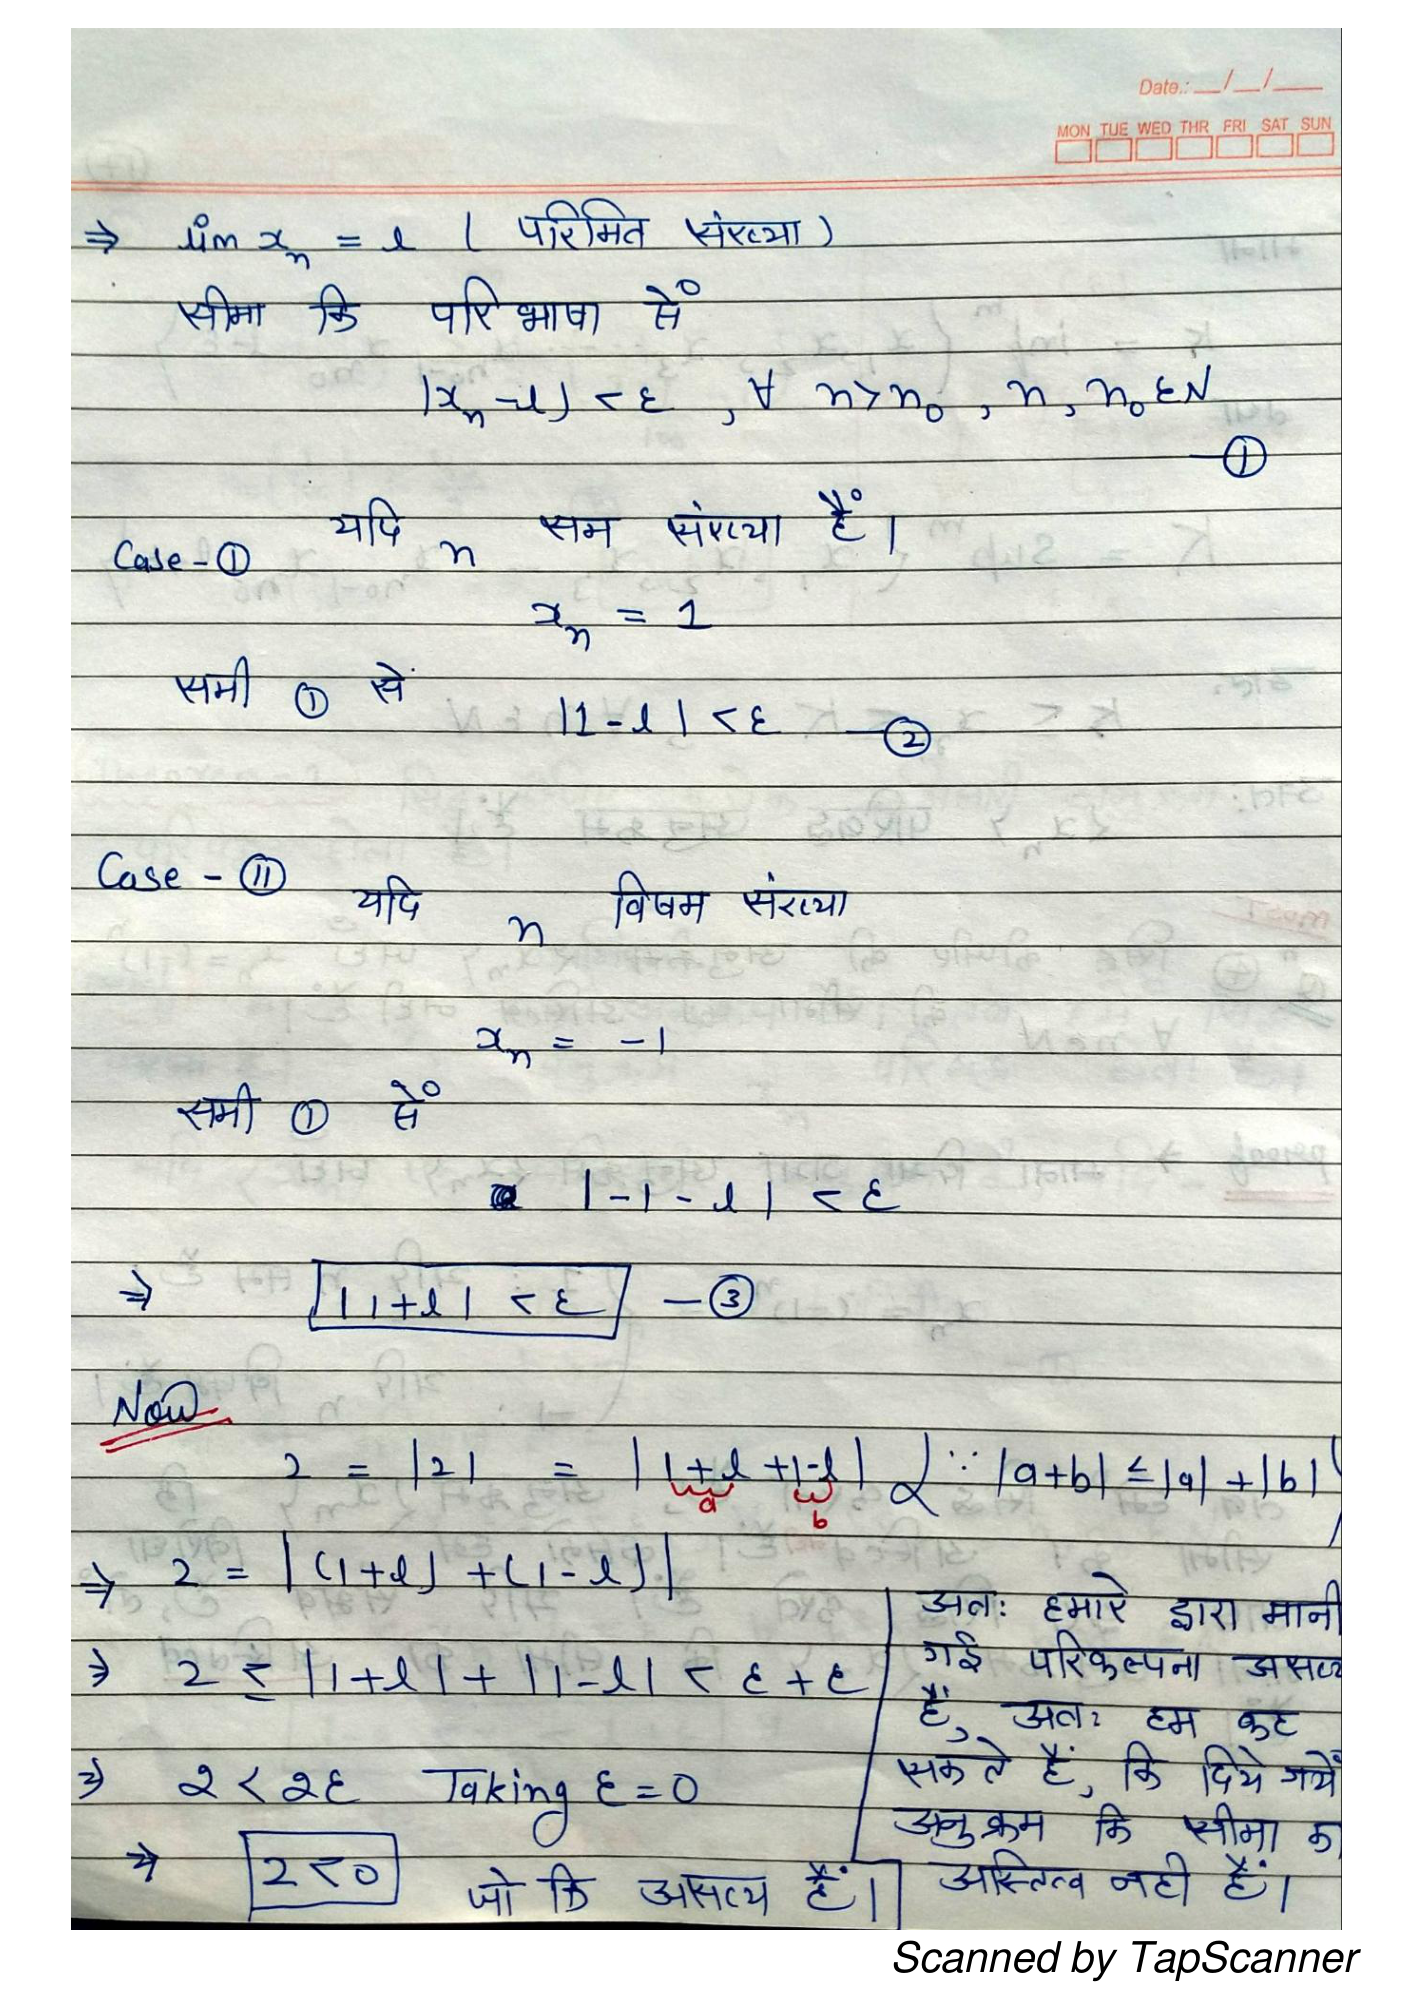 Date.: __/__/___
MON TUE WED THR FRI SAT SUN
⇒ lim xₙ = l ( परिमित संख्या )
सीमा कि परिभाषा सें
|xₙ - l| < ε , ∀ n > n₀ , n, n₀ ε N
— ①
Case - ① यदि n सम संख्या हैं।
xₙ = 1
समी ① सें
|1 - l| < ε — ②
Case - ⑪ यदि n विषम संख्या
xₙ = - 1
समी ① सें
|-1 - l| < ε
⇒ |1+l| < ε — ③
Now
2 = |2| = |1+l +1-l| { ∵ |a+b| ≤ |a| + |b| }
a b
⇒ 2 = |(1+l) + (1-l)|
⇒ 2 ≤ |1+l| + |1-l| < ε + ε
⇒ 2 < 2ε Taking ε = 0
⇒ 2 < 0 जो कि असत्य हैं।
अतः हमारे द्वारा मानी
गई परिकल्पना असत्य
हैं, अतः हम कह
सकते हैं, कि दिये गयें
अनुक्रम कि सीमा का
अस्तित्व नही हैं।
Scanned by TapScanner